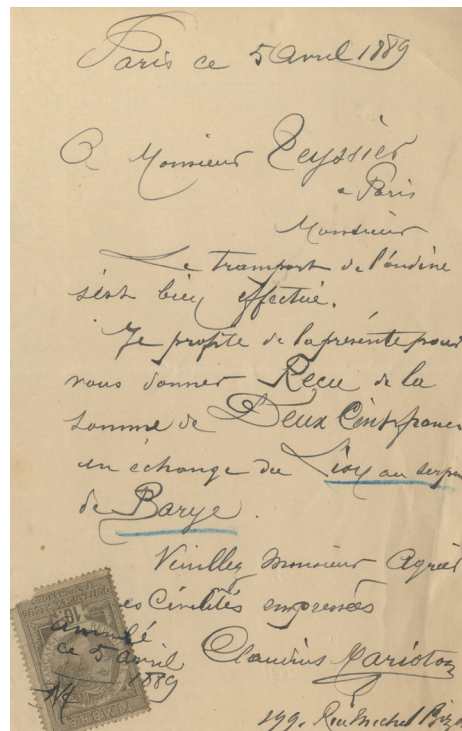 Paris ce 5 Avril 1889
A Monsieur Teyssier
a Paris
Monsieur
Le transport de l'ondine
s'est bien effectué.
Je profite de la présente pour
vous donner Reçu de la
somme de Deux Cents francs
en échange du Lion au serpen
de Barye.
Veuillez Monsieur Agréer
mes Civilités empressées
Claudius Marioton
199. Rue Michel Biz
annulé
ce 5 avril
1889